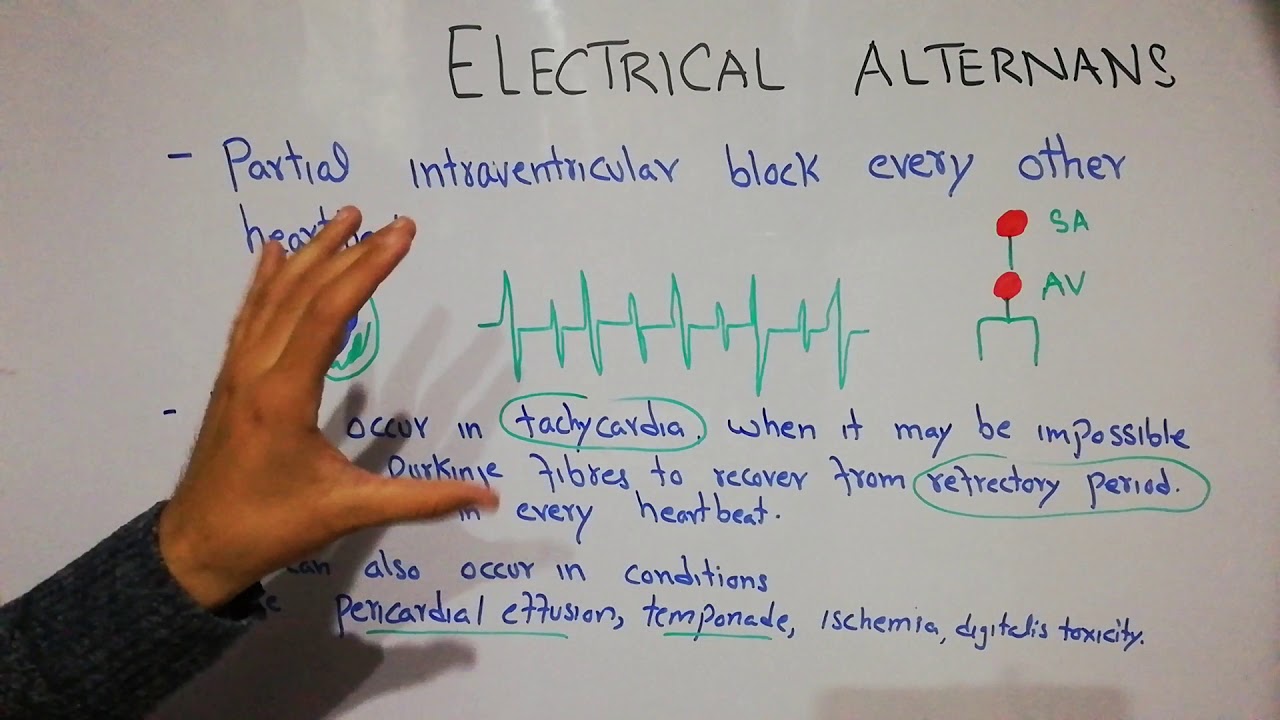 ELECTRICAL ALTERNANS
- Partial intraventricular block every other
SA
AV
- occur in tachycardia. when it may be impossible
Purkinje fibres to recover from refrectory period.
in every heartbeat.
can also occur in conditions
pericardial effusion, temponade, ischemia, digitelis toxicity.